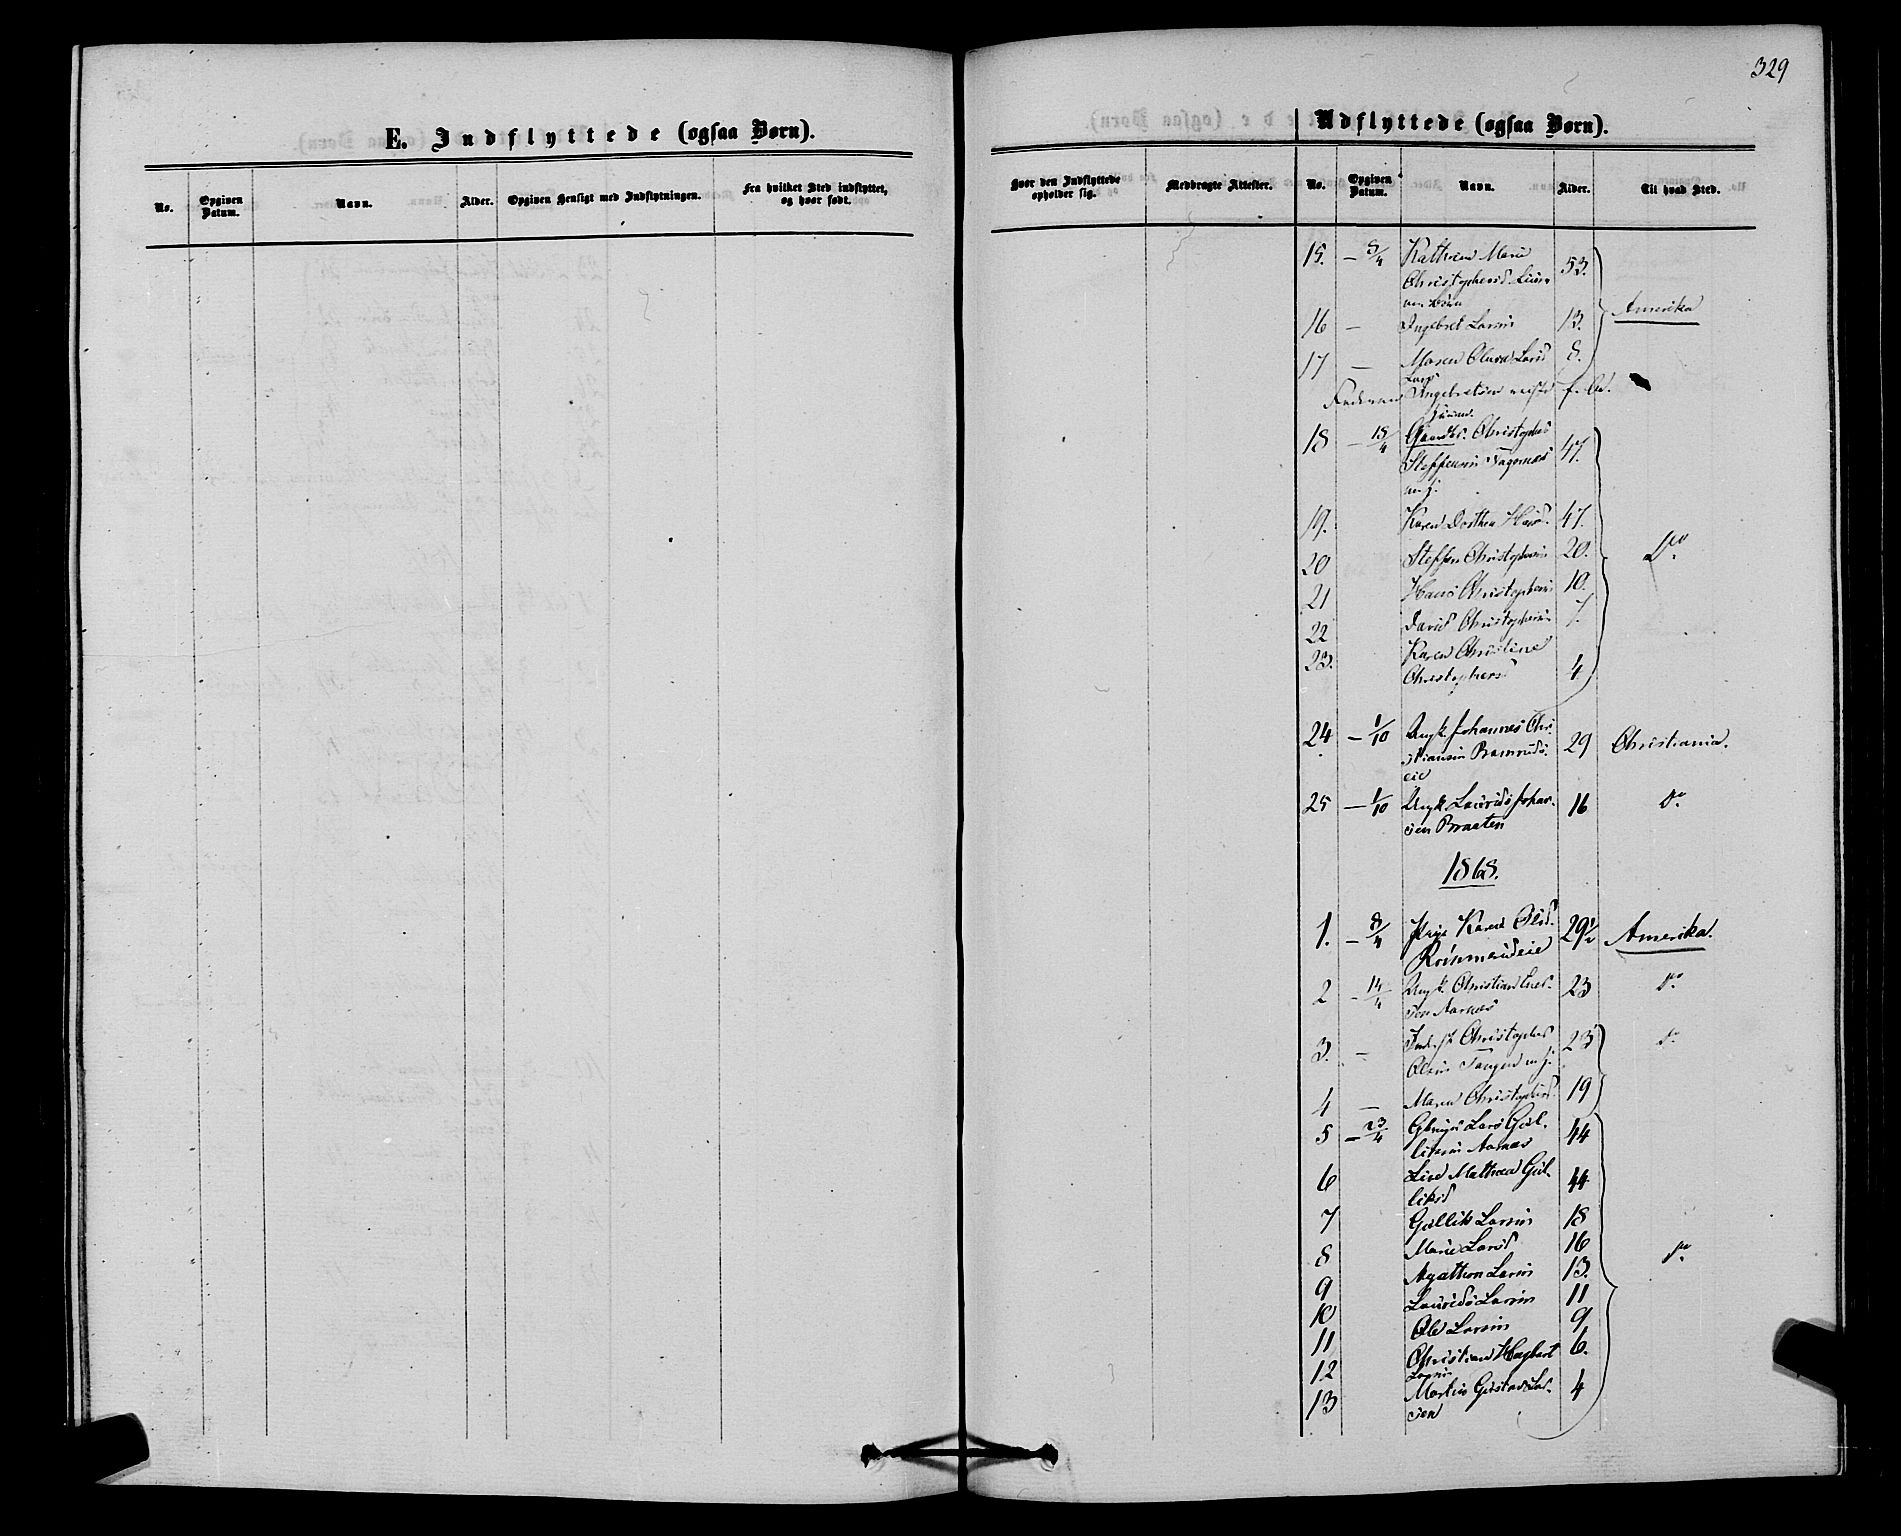 329
E. Indflyttede (ogsaa Børn).
No.
Opgiven Datum.
Navn.
Alder.
Opgiven Hensigt med Indflytningen.
Fra hvilket Sted indflyttet, og hvor født.
Hvor den Indflyttede opholder sig.
Medbragte Attester.
Udflyttede (ogsaa Børn).
No.
Opgiven Datum.
Navn.
Alder.
Til hvad Sted.
15. — 8/4 Kathrine Marie 53.
Christophersd.
16 — Ingebret Larsen 13. Amerika
17 — Maren Olava Larsd 8.
Lars Ingebretsen
18 — 15/4 Gaardbr. Christopher 47.
Steffensen Tagernæs
m. f.
19. Karen Dorthea Hansd. 47.
20 Steffen Christophersen 20. Do
21 Hans Christophersen 10.
22 David Christophersen 7.
23. Karen Christine
Christophersd 4
24 — 1/10 Ungk. Johannes Chri 29 Christiania.
stiansen
eie
25 — 1/10 Ungk. Laurids Johan- 16 do
sen Braaten
1868.
1. — 8/4 Pige Karen Olsd. 29½ Amerika.
2 — 14/4 Ungk. Christian 23 do
sen Aarnæs
3. — Christopher 23 do
Olsen Tangen m. f.
4 — Maren Christophersd. 19
5 — 23/4 Lars Gul- 44
liksen Aarnæs
6 Lise Mathea Gul- 44
liksd
7 Gullik Larsen 18
8 Marie Larsd 16 do
9 Agathon Larsen 13.
10 Laurids Larsen 11
11 Ole Larsen 9
12 Christian Hagbart 6.
Larsen
13 Martin Gustav Lar- 4
sen